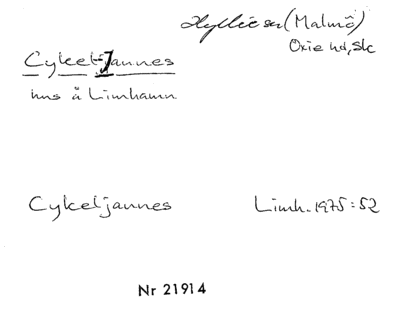 Hyllie sn (Malmö)
Oxie hd, Sk
Cykel-Jannes
hus å Limhamn
Cykeljannes Limh. 1975:52
Nr 21914